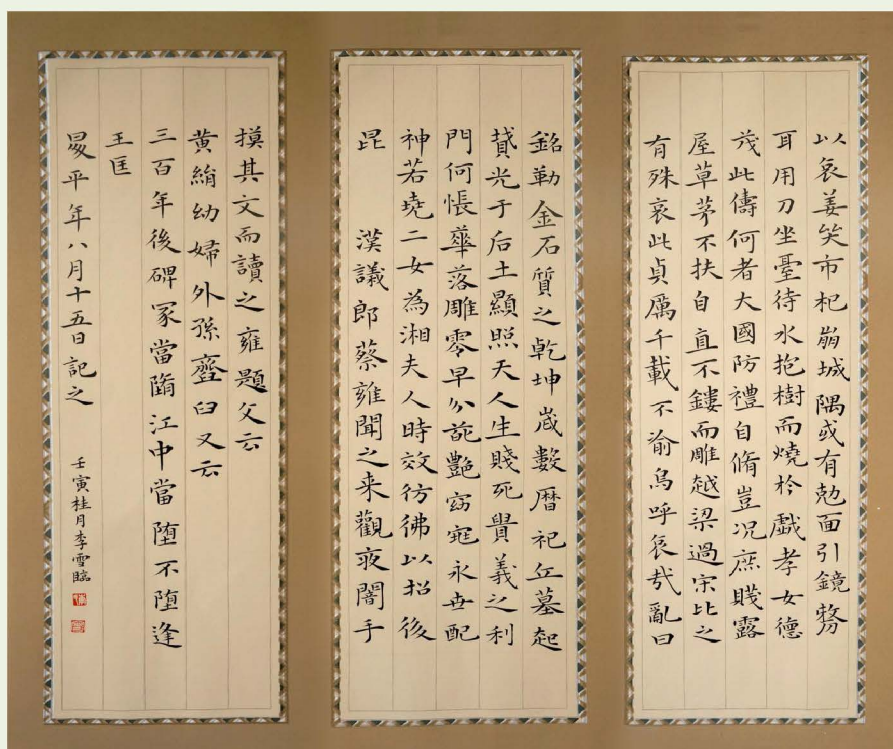 以哀姜哭市杞崩城隅或有尅面引鏡剺
耳用刀坐臺待水抱樹而燒於戲孝女德
茂此儔何者大國防禮自脩豈況庶賤露
屋草茅不扶自直不鏤而雕越梁過宋比之
有殊哀此貞厲千載不渝烏呼哀哉亂曰
銘勒金石質之乾坤歲數曆祀丘墓起
賁光于后土顯照天人生賤死貴義之利
門何悵華落雕零早分葩艷窈窕永世配
神若堯二女為湘夫人時效彷彿以招後
昆 漢議郎蔡雍聞之来觀夜闇手
摸其文而讀之雍題文云
黃絹幼婦外孫齏臼又云
三百年後碑冢當隋江中當墮不墮逢
王匡
昇平年八月十五日記之
壬寅桂月李雪臨